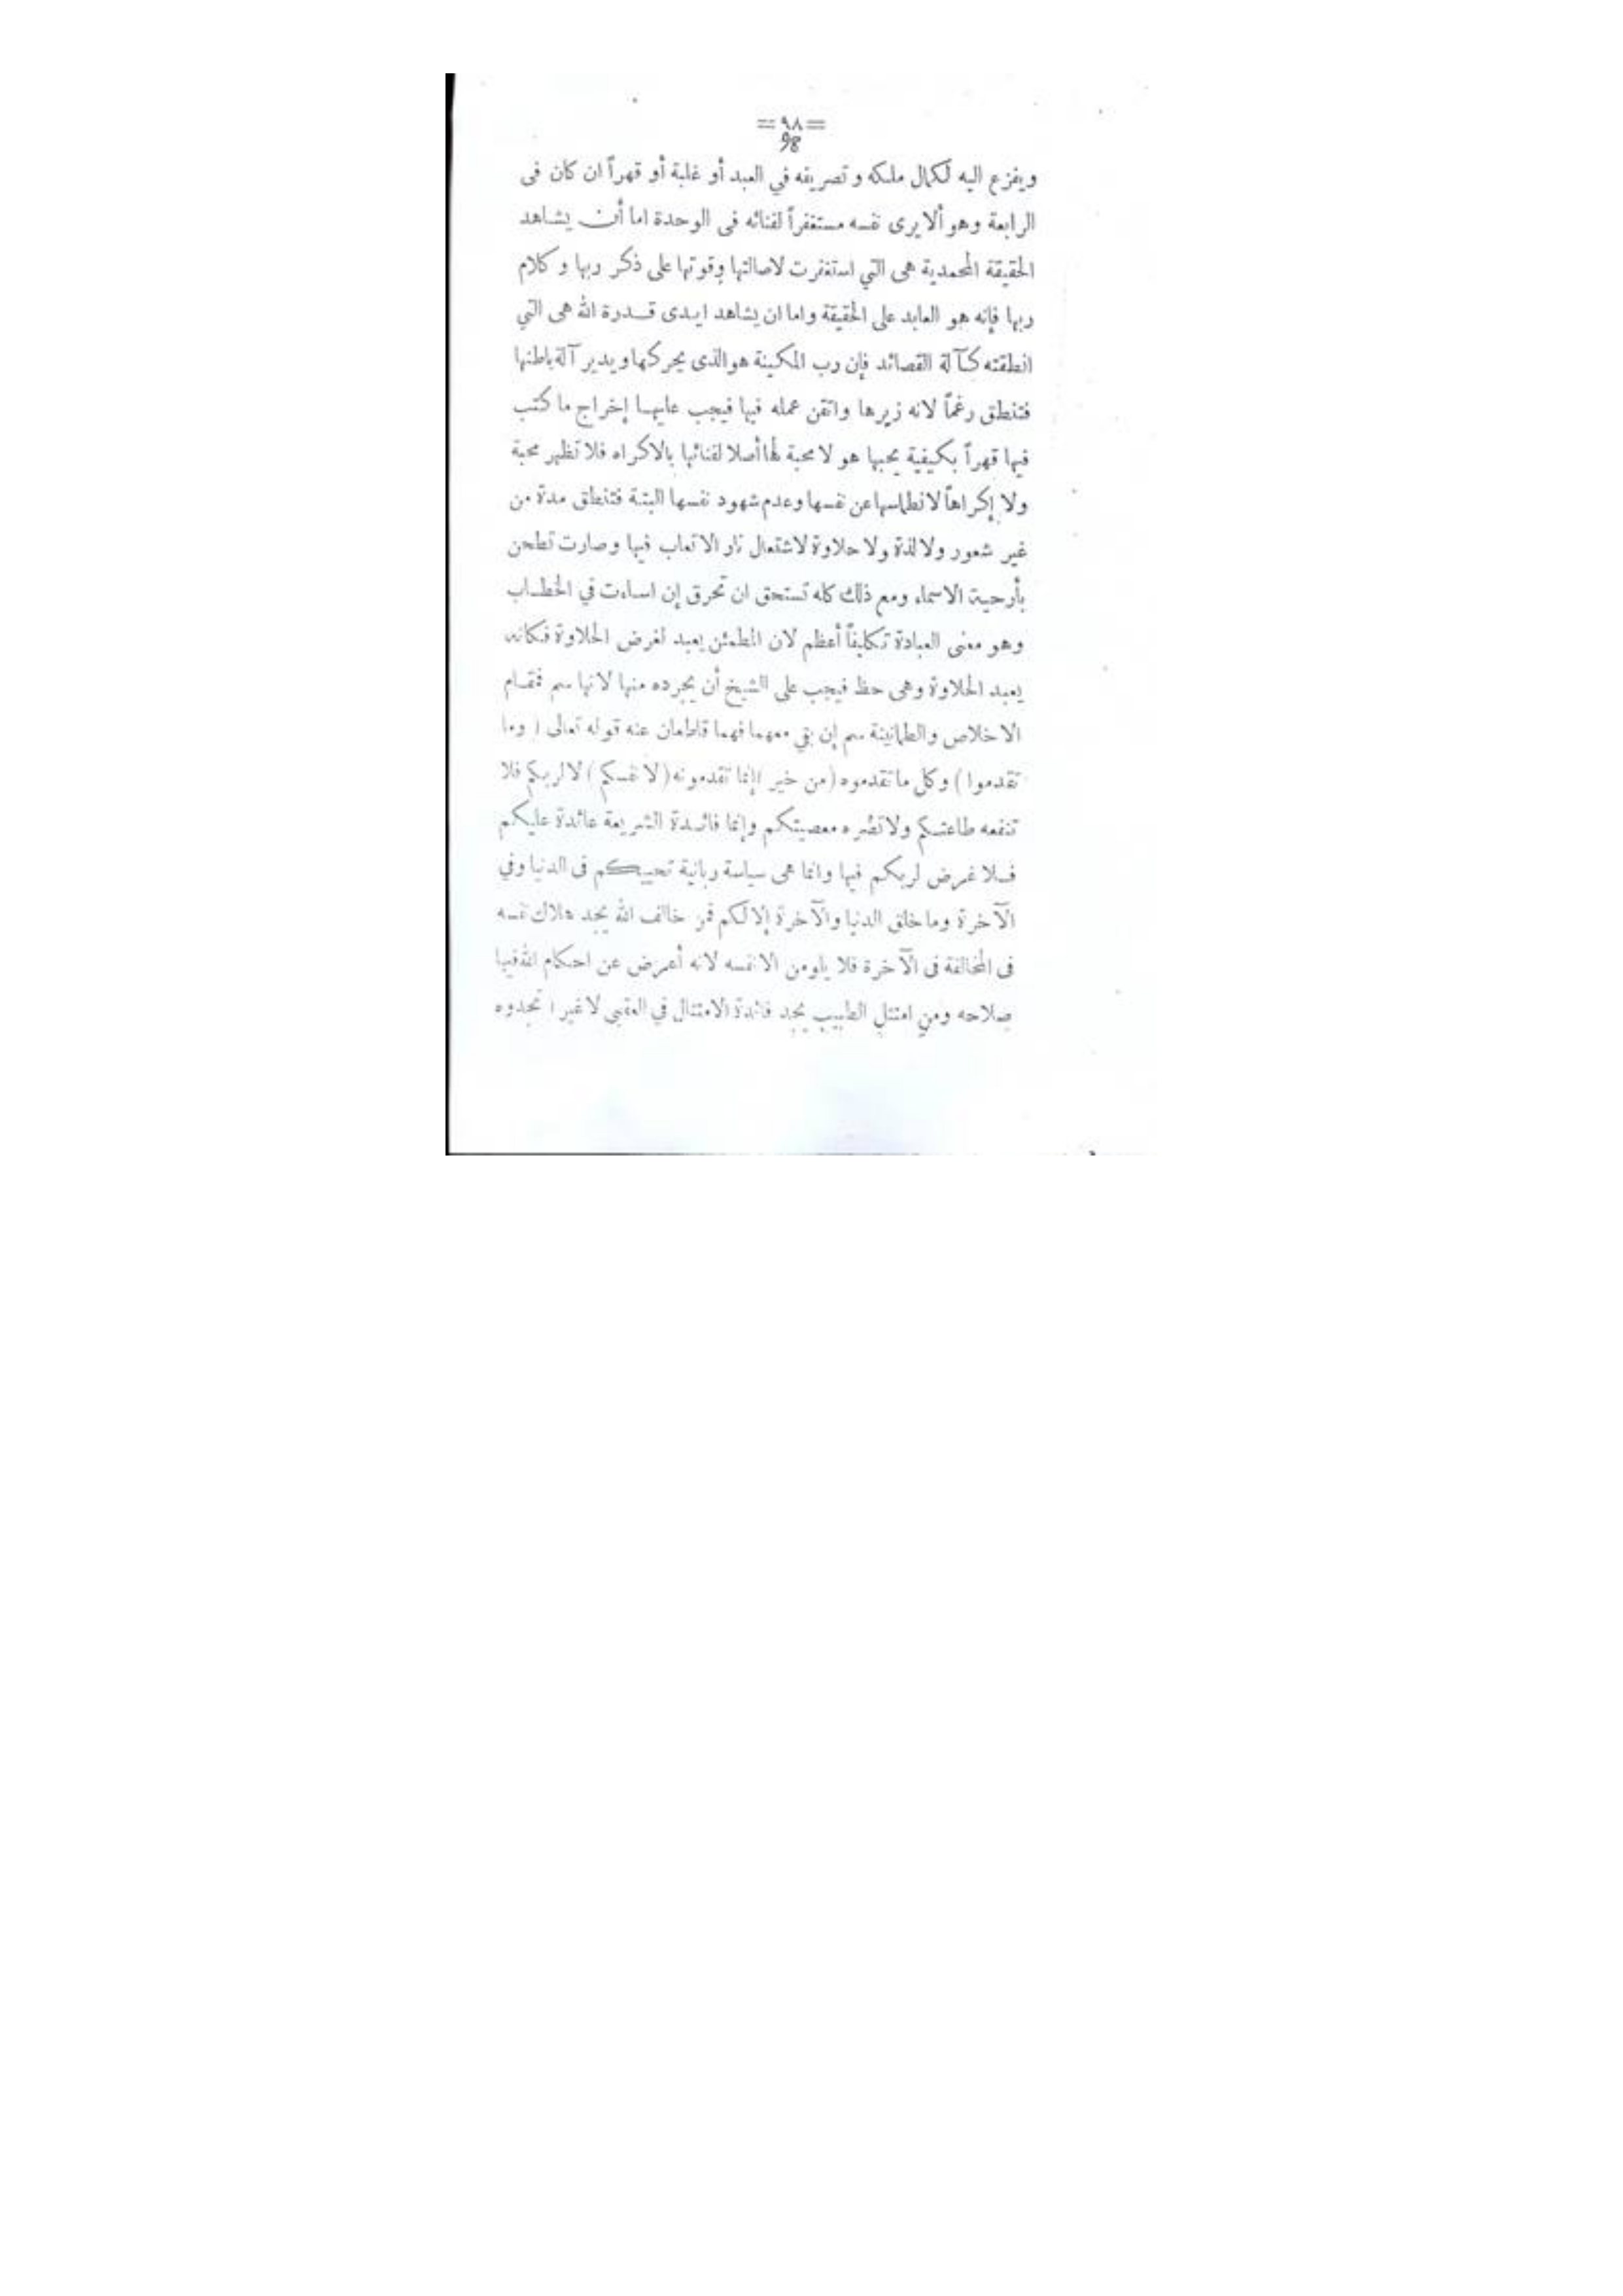 =٩٨=
98
ويفزع اليه لكمال ملكه و تصريفه في العبد أو غلبة أو قهراً ان كان فى
الرابعة وهو ألا يرى نفسه مستغفراً لفنائه فى الوحدة اما أن يشاهد
الحقيقة المحمدية هى التي استغفرت لاصالتها وقوتها على ذكر ربها و كلام
ربها فإنه هو العابد على الحقيقة واما ان يشاهد ايدى قدرة الله هى التي
انطقته كآلة القصائد فإن رب المكينة هو الذى يحركها ويدير آلة باطنها
فتنطق رغماً لانه زيرها واتقن عمله فيها فيجب عليها إخراج ما كتب
فيها قهراً بكيفية يحبها هو لا محبة لها أصلا لفنائها بالاكراه فلا تظهر محبة
ولا إكراهاً لانطماسها عن نفسها وعدم شهود نفسها البتة فتنطق مدة من
غير شعور ولا لذة ولا حلاوة لاشتعال نار الاتعاب فيها وصارت تطحن
بأرحية الاسماء ومع ذلك كله تستحق ان تحرق إن اساءت في الخطاب
وهو معنى العبادة تكليفاً أعظم لان المطمئن يعبد لغرض الحلاوة فكانه
يعبد الحلاوة وهى حظ فيجب على الشيخ أن يجرده منها لانها سم فمقام
الاخلاص والطمانينة سم إن بقي معهما فهما قاطعان عنه قوله تعالى ( وما
تقدموا ) وكل ما تقدموه (من خير )إنما تقدمونه (لانفسكم ) لا لربكم فلا
تنفعه طاعتكم ولا تضره معصيتكم وإنما فائدة الشريعة عائدة عليكم
فلا غرض لربكم فيها وانما هى سياسة ربانية تحييكم فى الدنيا وفي
الآخرة وما خلق الدنيا والآخرة إلا لكم فمن خالف الله يجد هلاك نفسه
فى المخالفة فى الآخرة فلا يلومن الا نفسه لانه أعرض عن احكام الله فيها
صلاحه ومن امتثل الطبيب يجد فائدة الامتثال في العقبى لا غير ( تجدوه